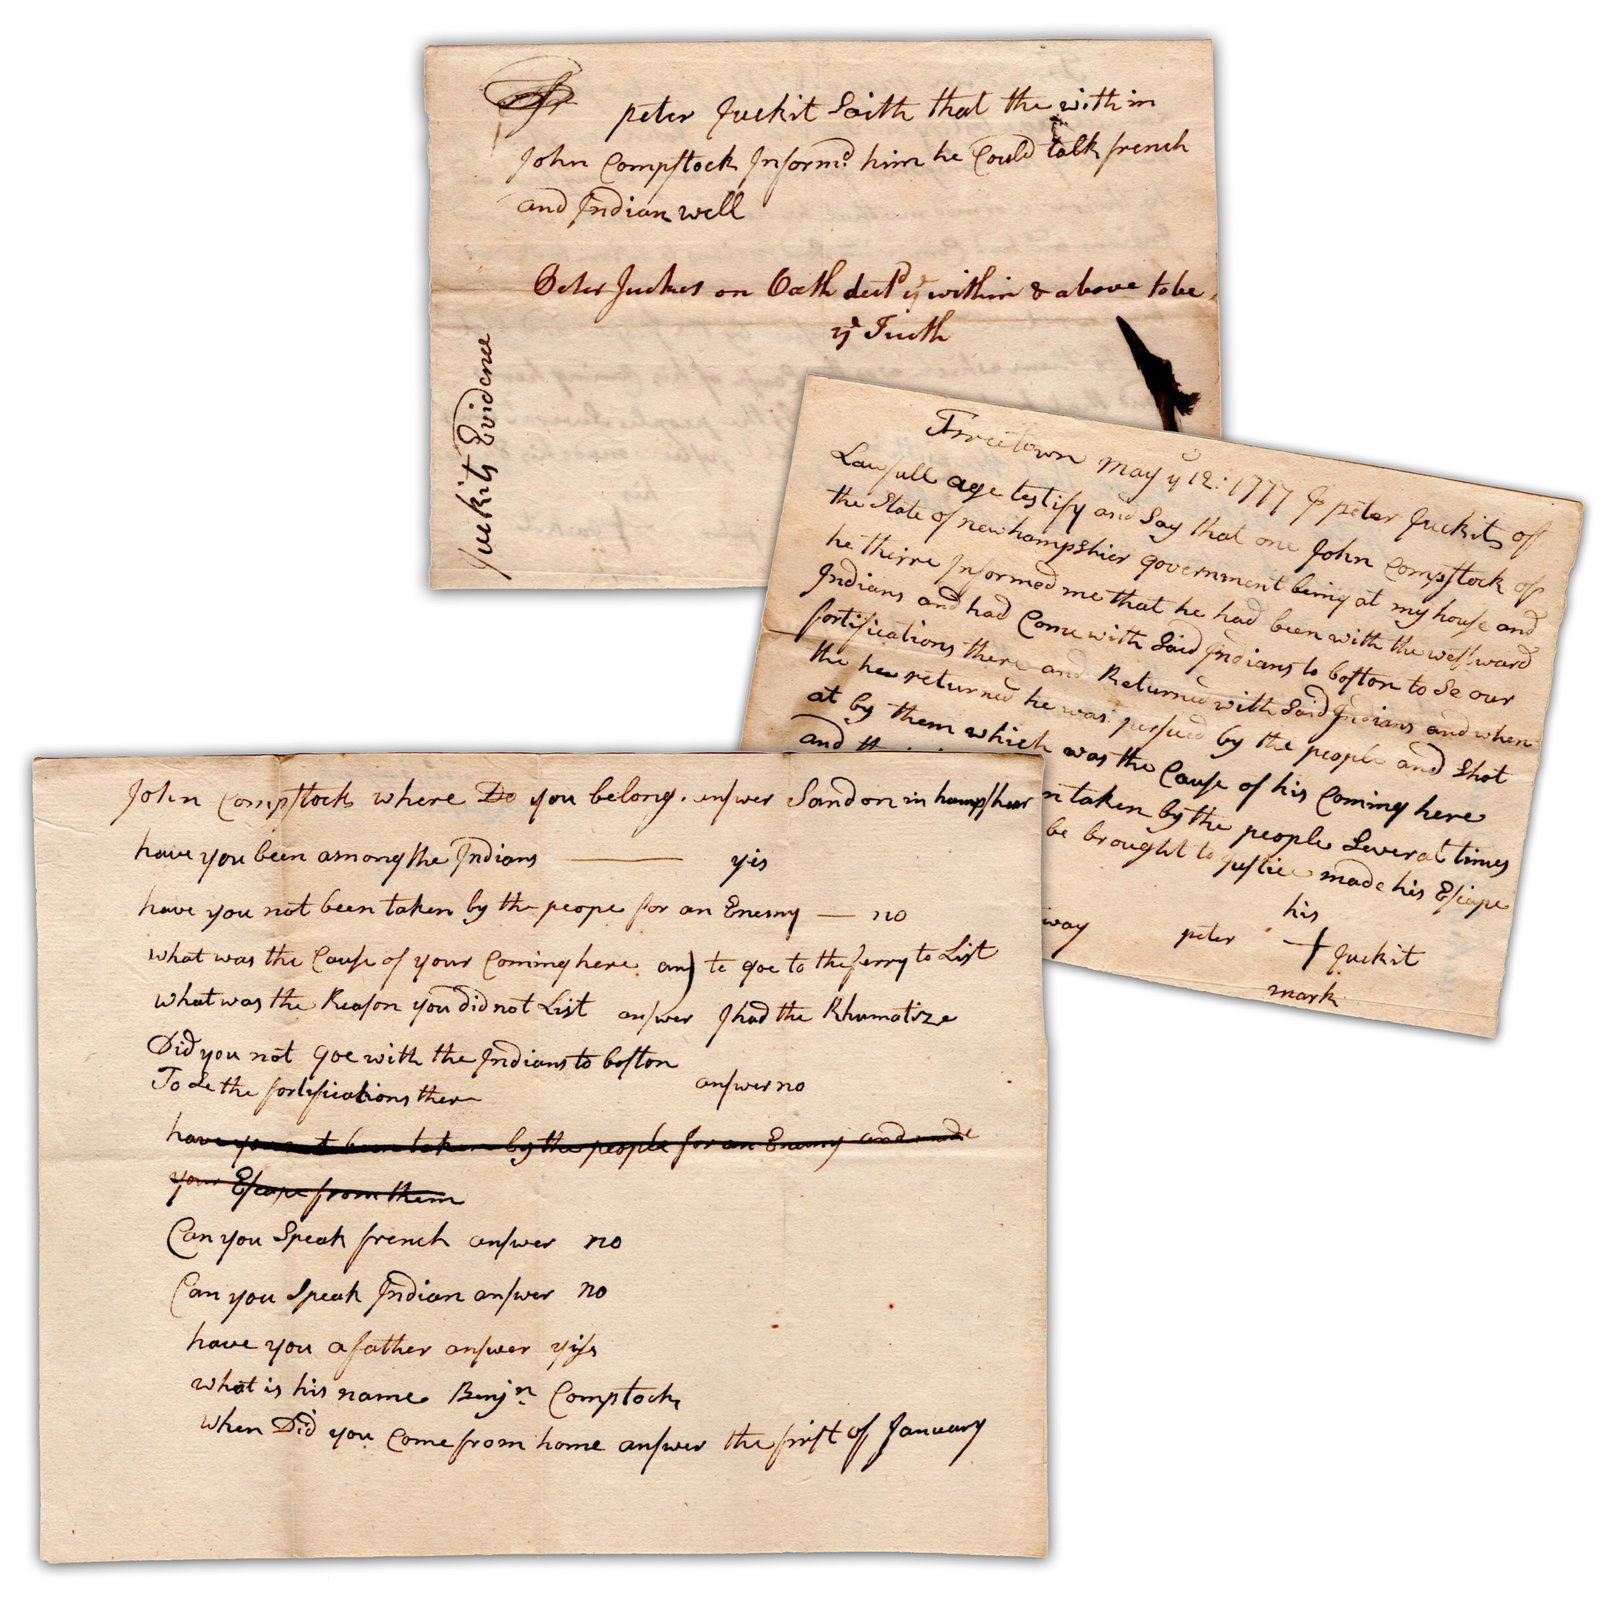 peter Juckit Saith that the within
John Compstock Informd him he Could talk french
and Indian well
Peter Juckit on Oath decld ye within & above to be
ye Truth
Juckits Evidence
Freetown may ye 12: 1777 I peter Juckits of
Lawfull age testify and Say that one John Compstock of
the State of newhampshier government being at my house and
he theire Informed me that he had been with the westward
Indians and had Come with Said Indians to boston to Se our
fortifications there and Returned with Said Indians and when
the he returned he was persued by the people and Shot
at by them which was the Cause of his Coming here
and taken by the people Several times
be brought to justice made his Escape
way peter his
+ Juckit
mark
John Compstock where Do you belong. answer Sandon in hampsheer
have you been among the Indians — yis
have you not been taken by the peope for an Enemy — no
what was the Cause of your Coming here. an) to goe to the ferry to List
what was the Reason you did not List answer I had the Rhumatize
Did you not goe with the Indians to boston
To Se the fortifications ther answer no
have you not been taken by the people for an Enemy and made
your Escape from them
Can you Speak french answer no
Can you Speak Indian answer no
have you a father answer yiss
what is his name Benjn Compstock
when Did you Come from home answer the first of January